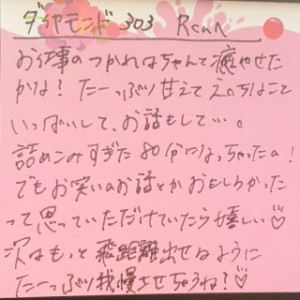 ダイヤモンド 303 Rさんへ
お仕事のつかれはちゃんと癒やせた
かな！たーっぷり甘えてえっちなこと
いっぱいして、お話もして…。
詰めこみすぎた80分になっちゃったね！
でもお笑いのお話とかおもしろかった
って思っていただけていたら嬉しい♡
次はもっと飛距離出せるように
たーっぷり我慢させちゃうね？♡